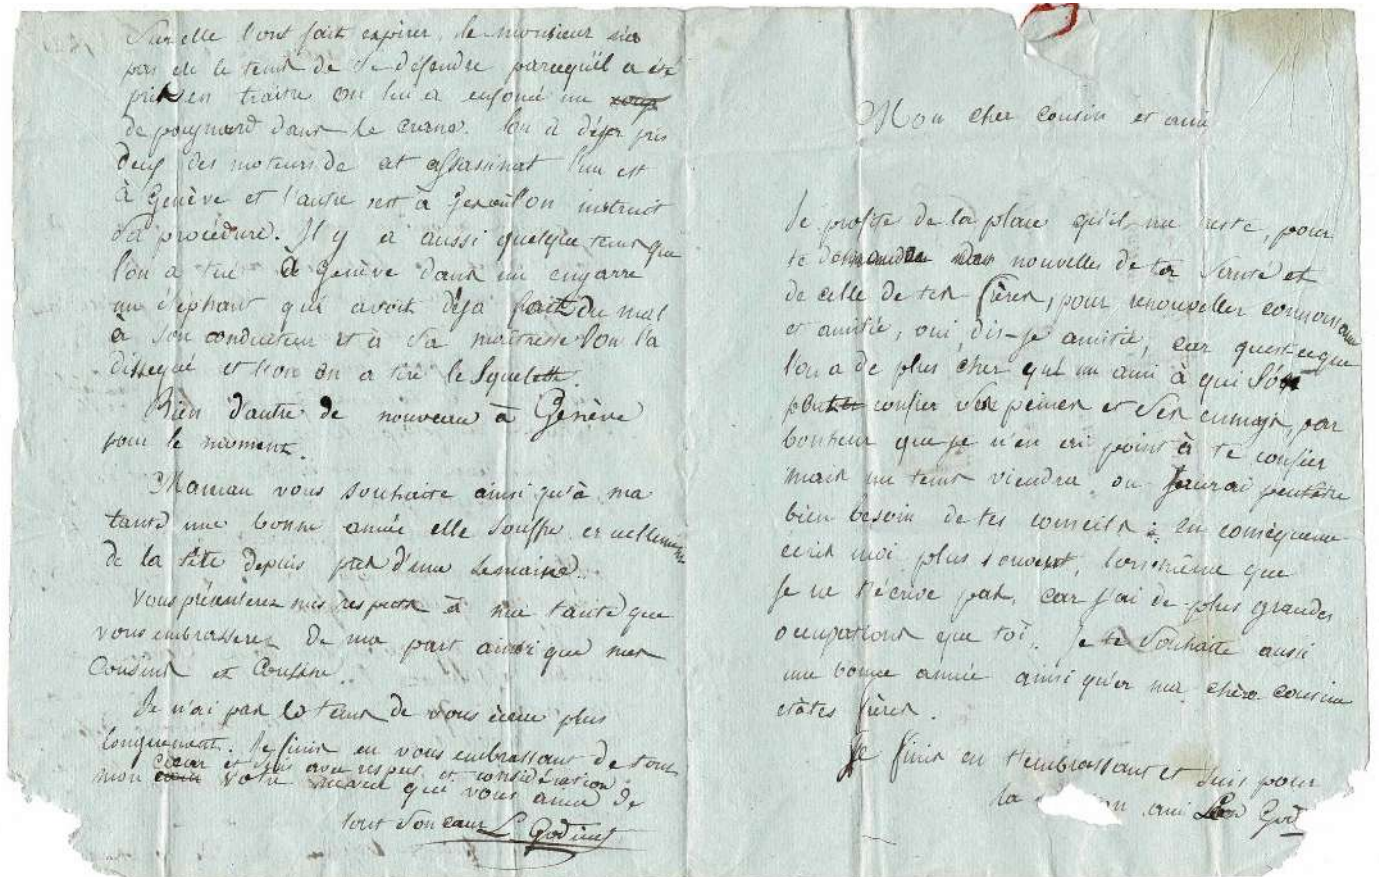 Sur elle l'ont fait expirer, le monsieur n'a
pas eu le tems de se défendre parcequ'il a été
pris en traitre on lui a enfoncé un coup
de poignard dans le crane. l'on a déja pris
deux des moteurs de cet assassinat l'un est
à Genève et l'autre est à Gex où l'on instruit
sa procédure. Il y a aussi quelque tems que
l'on a tué à Genève dans un
un éléphant qui avoit déjà fait du mal
à son conducteur et à sa maitresse l'on l'a
disséqué et l'on en a tiré le squelette.
Rien d'autre de nouveau à Genève
pour le moment.
Maman vous souhaite ainsi qu'à ma
tante une bonne année elle souffre cruellement
de la tête depuis près d'une semaine.
Vous présenterez mes respects à ma tante que
vous embrasserez de ma part ainsi que mes
Cousins et Cousine.
Je n'ai pas le tems de vous écrire plus
longuement. Je finis en vous embrassant de tout
mon cœur et suis avec respect et considération
votre neveu qui vous aime de
tout son cœur L. Godinet
Mon cher cousin et ami
Je profite de la place qu'il me reste, pour
te demander des nouvelles de ta santé et
de celle de tes frères, pour renouveller connoissance
et amitié, oui, dis-je amitié, car qu'est-ce que
l'on a de plus cher qu'un ami à qui l'on
confier ses peines et ses ennuys, par
bonheur que je n'en ai point à te confier
mais un tems viendra où j'aurai peutêtre
bien besoin de tes conseils : en conséquence
écris moi plus souvent, lors même que
je ne t'écrive pas, car j'ai de plus grandes
ocupations que toi. je te souhaite aussi
une bonne année ainsi qu'a ma chère cousine
et à tes frères.
Je finis en t'embrassant et suis pour
la ami God